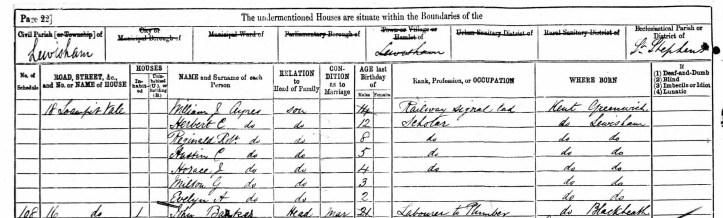 Page 22] The undermentioned Houses are situate within the Boundaries of the
Civil Parish [or Township] of City or Municipal Borough of Municipal Ward of Parliamentary Borough of Town or Village or Hamlet of Urban Sanitary District of Rural Sanitary District of Ecclesiastical Parish or District of
Lewisham Lewisham St Stephen
No. of Schedule ROAD, STREET, &c., and No. or NAME of HOUSE HOUSES Inhabited Uninhabited (U.), or Building (B.) NAME and Surname of each Person RELATION to Head of Family CONDITION as to Marriage AGE last Birthday of Males Females Rank, Profession, or OCCUPATION WHERE BORN If (1) Deaf-and-Dumb (2) Blind (3) Imbecile or Idiot (4) Lunatic
18 Vale William J Ayres son 14 Railway signal lad Kent Greenwich
Herbert C do do 12 Scholar do Lewisham
Reginald Robt. do do 8 do do do
Austin C do do 5 do do do
Horace J do do 4 do do do
Milton G do do 3 do do
Evelyn A do do 2 do do
108 16 do 1 John Barker Head Mar 21 Labourer to Plumber do Blackheath